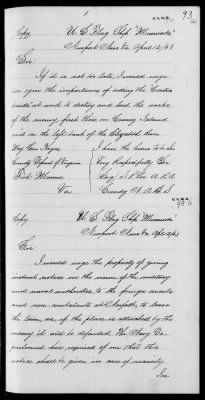 1
93
Copy U.S. Flag Ship "Minnesota"
Newport News Va April 12/63
Sir
If it is not too late, I would urge
upon the importance of adding the
at work to destroy and
of the enemy, from on Island
and on the left bank of the Elizabeth River
Maj Genl Keyes I have the honor to be Sir
Comdg Depmt of Virginia Very Respectfully Yr
Fort Monroe S.P. Lee A.R.A
Va Comdg N.A.B.S
Copy U.S. Flag Ship "Minnesota"
Newport News Va Apl
Sir
I would urge the propriety of giving
instant notice in the name of the military
and naval authorities, to the foreign consuls
and non combatants at Norfolk, to leave
the town, as if the place is attacked by the
enemy it will be defended. The Navy De-
partment has required of me that this
notice shall be given in case of necessity